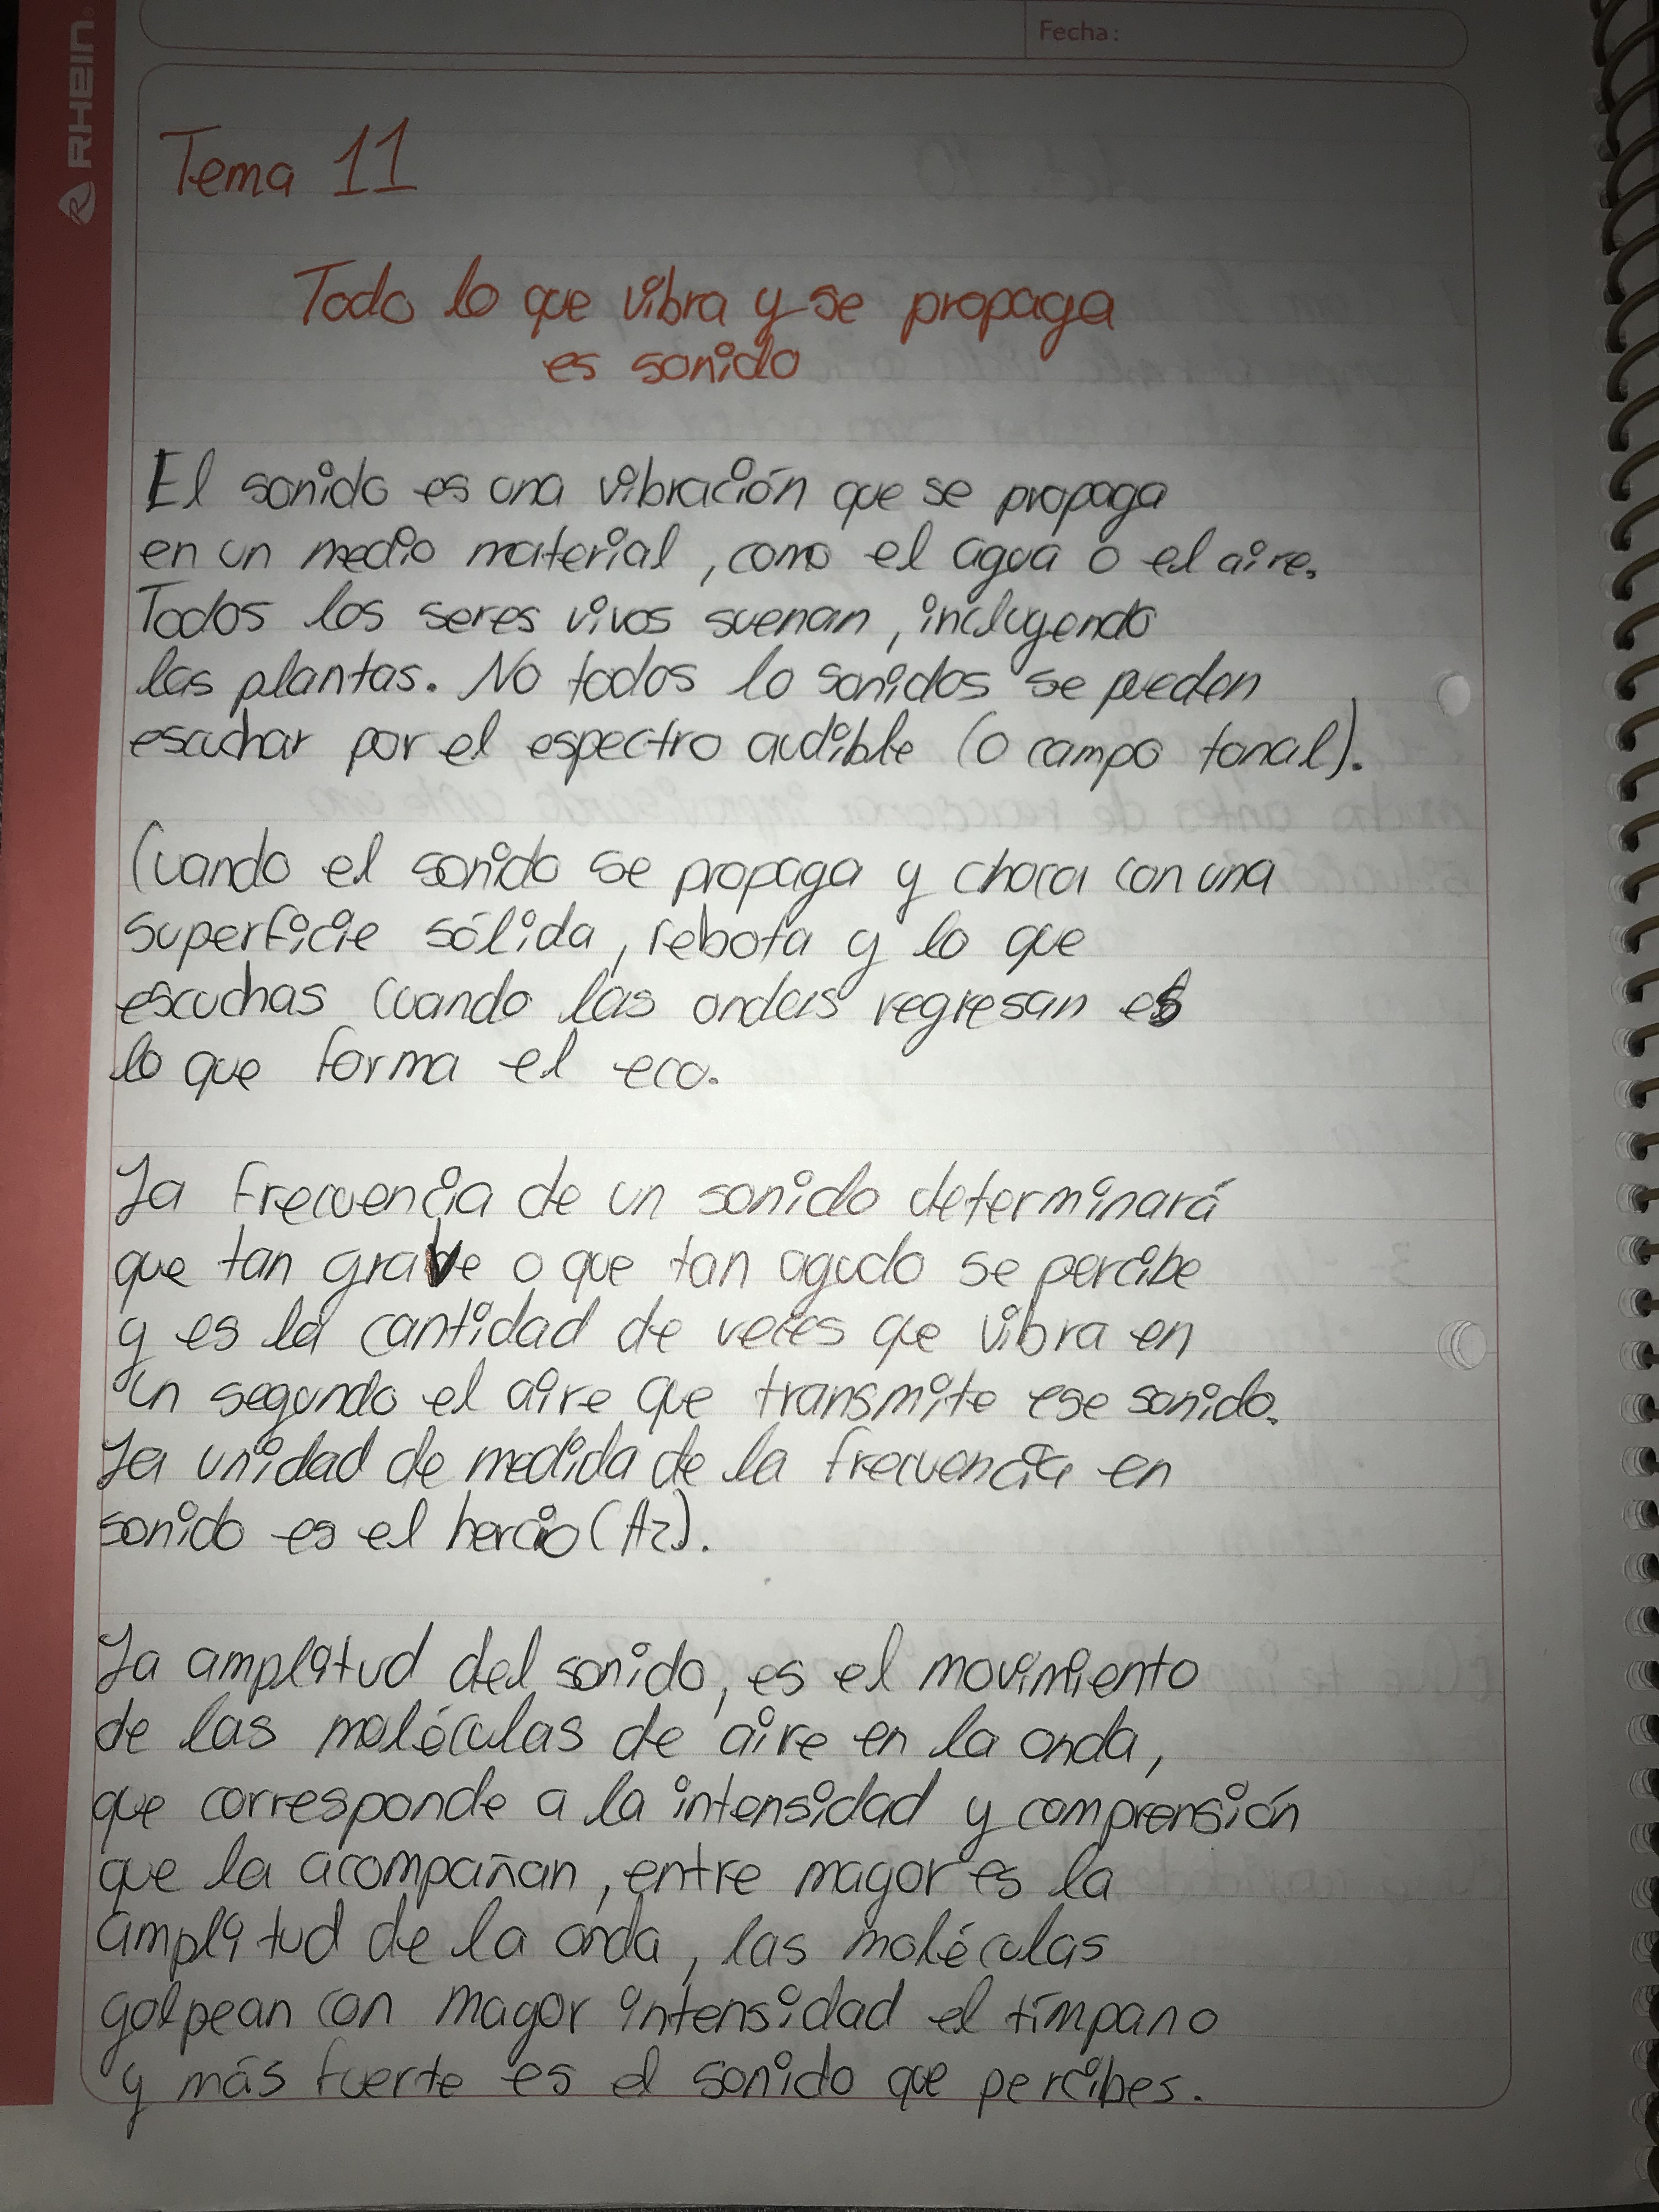 RHEIN
Fecha:
Tema 11
Todo lo que vibra y se propaga
es sonido
El sonido es una vibración que se propaga
en un medio material, como el agua o el aire.
Todos los seres vivos suenan, incluyendo
las plantas. No todos lo sonidos se pueden
escuchar por el espectro audible (o campo tonal).
Cuando el sonido se propaga y choca con una
superficie sólida, rebota y lo que
escuchas cuando las ondas regresan es
lo que forma el eco.
La frecuencia de un sonido determinará
que tan grave o que tan agudo se percibe
y es la cantidad de veces que vibra en
un segundo el aire que transmite ese sonido.
La unidad de medida de la frecuencia en
sonido es el hercio (Hz).
La amplitud del sonido, es el movimiento
de las moléculas de aire en la onda,
que corresponde a la intensidad y comprensión
que la acompañan, entre mayor es la
amplitud de la onda, las moléculas
golpean con mayor intensidad el tímpano
y más fuerte es el sonido que percibes.